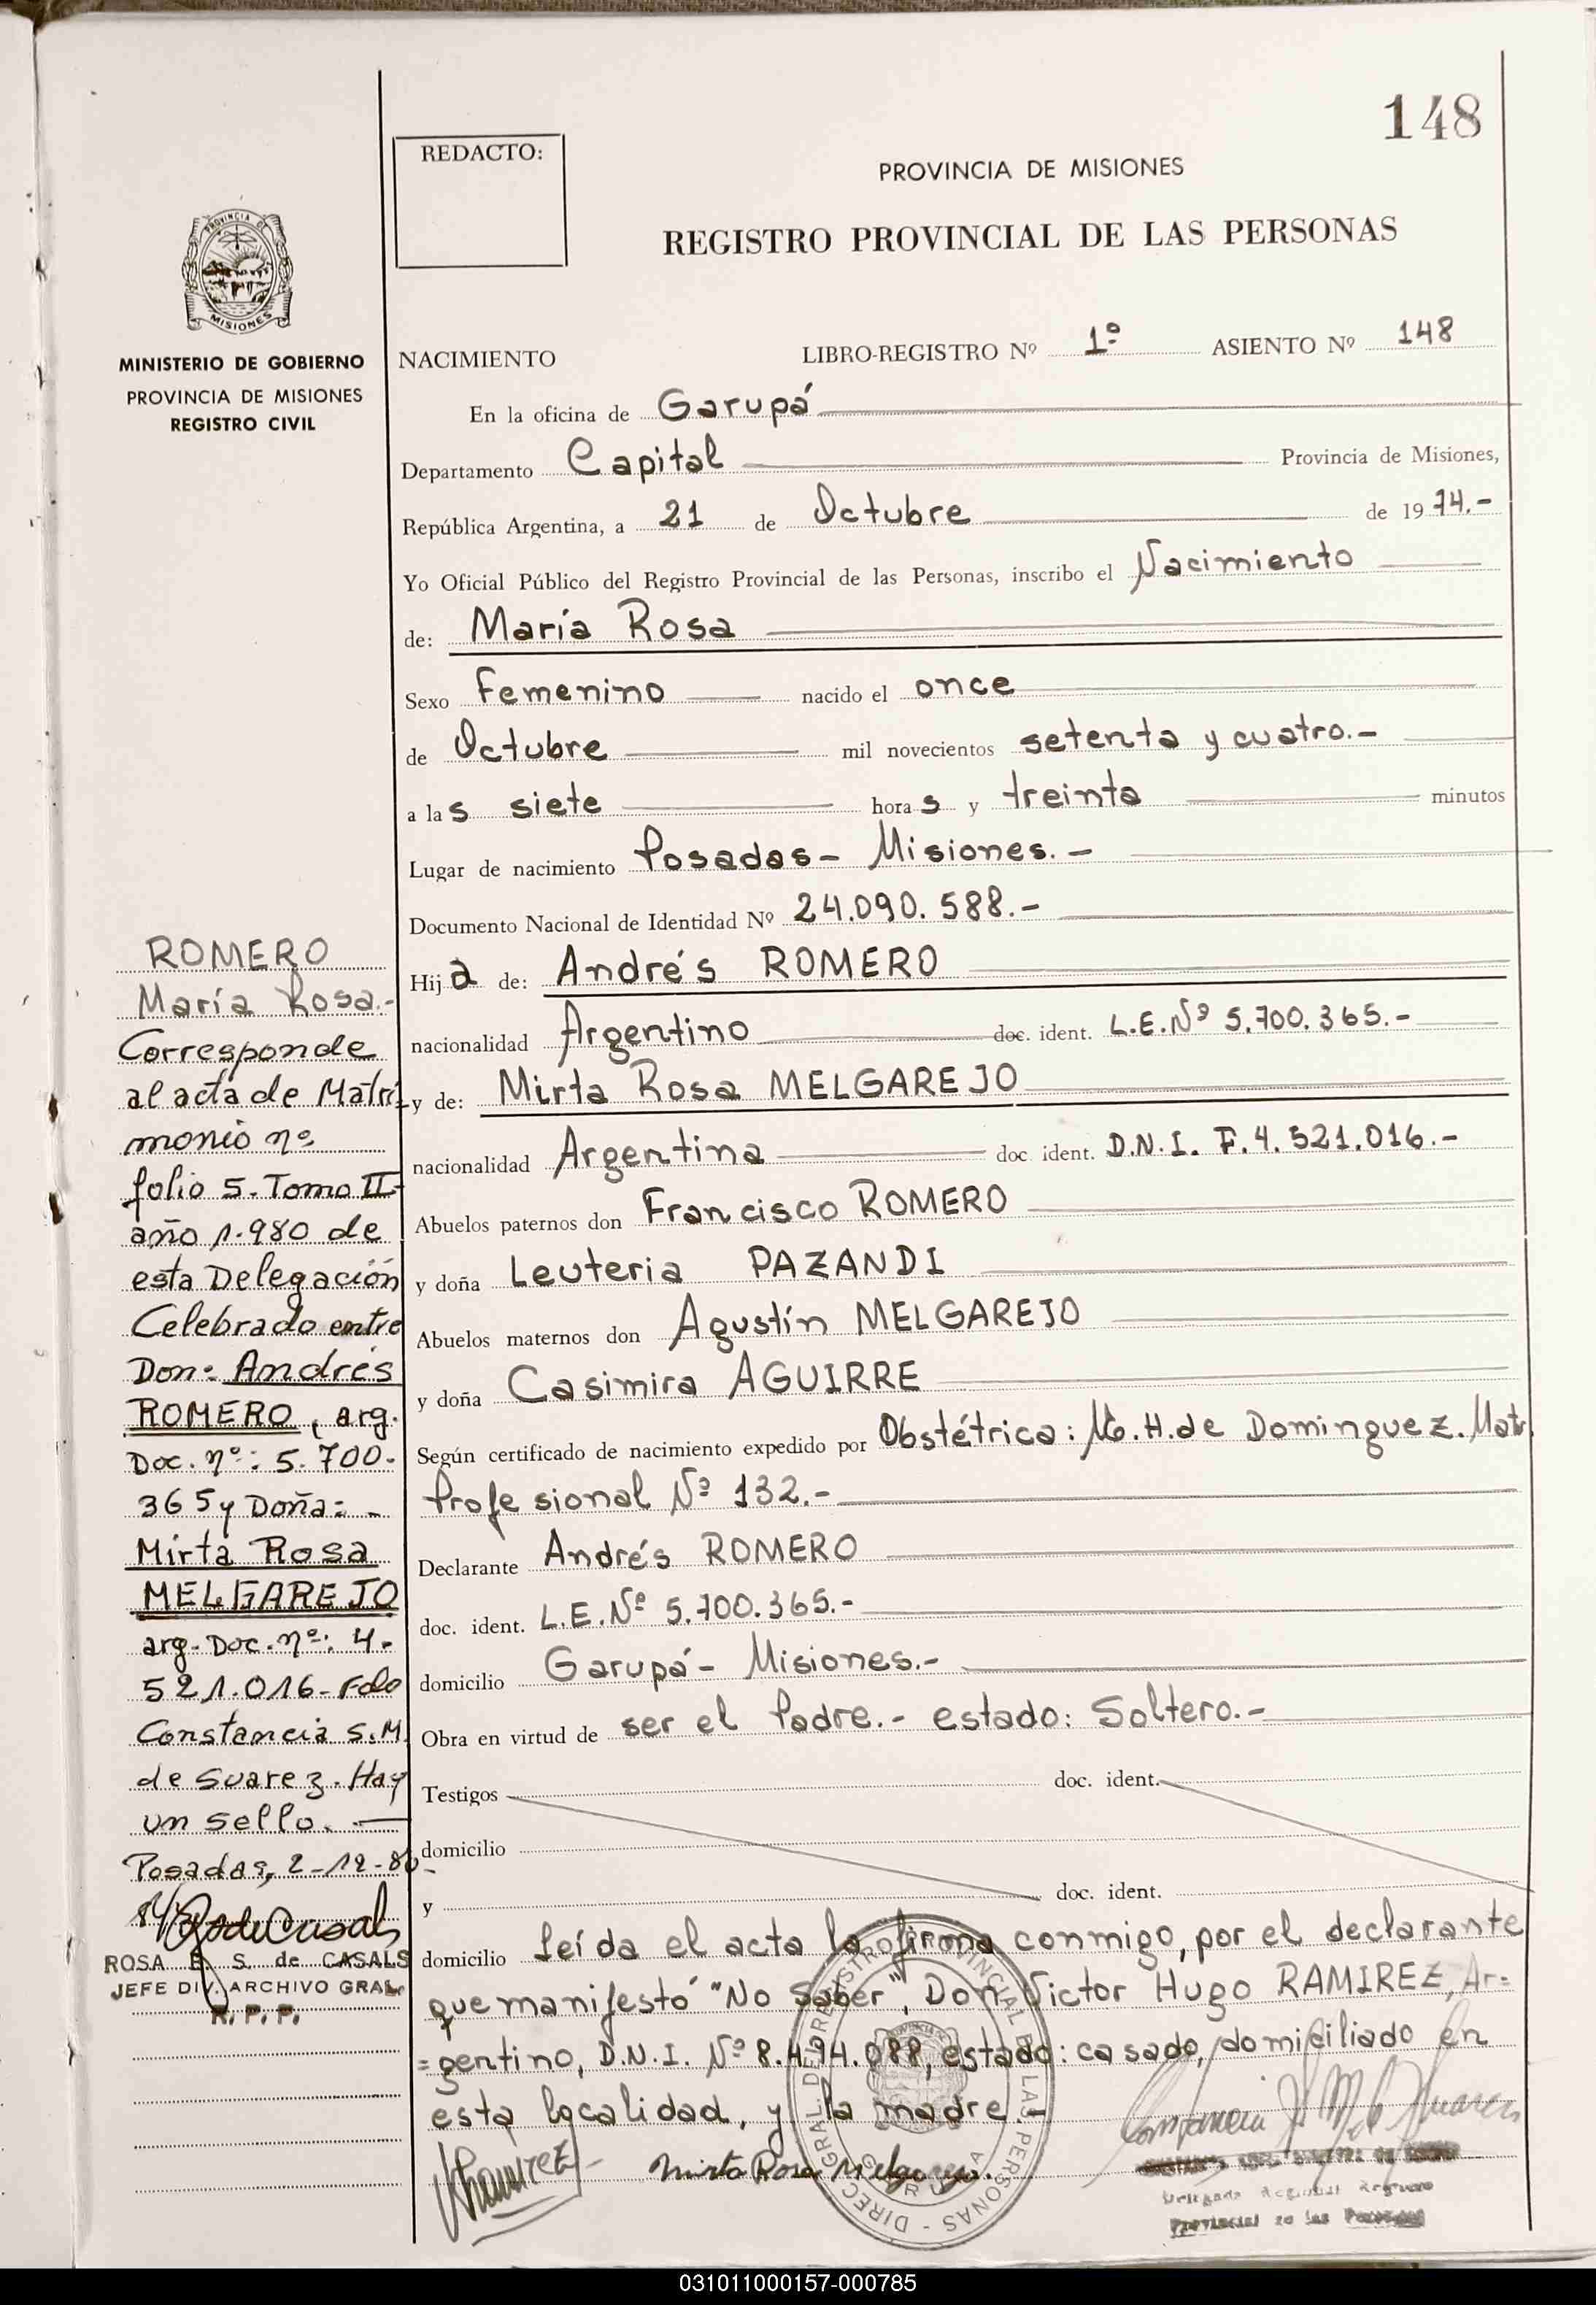 148
REDACTO:
PROVINCIA DE MISIONES
REGISTRO PROVINCIAL DE LAS PERSONAS
MISIONES
MINISTERIO DE GOBIERNO
PROVINCIA DE MISIONES
REGISTRO CIVIL
NACIMIENTO LIBRO-REGISTRO Nº 1º ASIENTO Nº 148
En la oficina de Garupá
Departamento Capital Provincia de Misiones,
República Argentina, a 21 de Octubre de 1974.-
Yo Oficial Público del Registro Provincial de las Personas, inscribo el Nacimiento
de: María Rosa
Sexo Femenino nacido el once
de Octubre mil novecientos setenta y cuatro.-
a las siete horas y treinta minutos
Lugar de nacimiento Posadas- Misiones.-
Documento Nacional de Identidad Nº 24.090.588.-
Hija de: Andrés ROMERO
nacionalidad Argentino doc. ident. L.E.Nº 5.700.365.-
y de: Mirta Rosa MELGAREJO
nacionalidad Argentina doc. ident. D.N.I. F.4.521.016.-
Abuelos paternos don Francisco ROMERO
y doña Leuteria PAZANDI
Abuelos maternos don Agustín MELGAREJO
y doña Casimira AGUIRRE
Según certificado de nacimiento expedido por Obstétrica: H. de Dominguez. Matr.
Profesional Nº 132.-
Declarante Andrés ROMERO
doc. ident. L.E.Nº 5.700.365.-
domicilio Garupá- Misiones.-
Obra en virtud de ser el Padre.- estado: Soltero.-
Testigos doc. ident.
domicilio
y doc. ident.
domicilio Leída el acta la firma conmigo, por el declarante
que manifestó "No Saber", Don Victor Hugo RAMIREZ, Ar=
=gentino, D.N.I. Nº 8.494.088, estado: casado, domiciliado en
esta localidad, y la madre.-
Mirta Rosa Melgarejo.
DIREC. GRAL. DEL REGISTRO PROVINCIAL DE LAS PERSONAS - GARUPA
Provincial de las Personas
ROMERO
María Rosa.-
Corresponde
al acta de Matri
monio nº
folio 5. Tomo II-
año 1.980 de
esta Delegación
Celebrado entre
Don: Andrés
ROMERO, arg.
Doc. nº: 5.700-
365 y Doña: -
Mirta Rosa
MELGAREJO
arg- Doc. nº: 4.
521.016- Fdo
Constancia S.M.
de Suarez. Hay
un sello.
Posadas, 2-12-80-
ROSA E. S. de CASALS
JEFE DIV. ARCHIVO GRAL.
R. P. P.
031011000157-000785